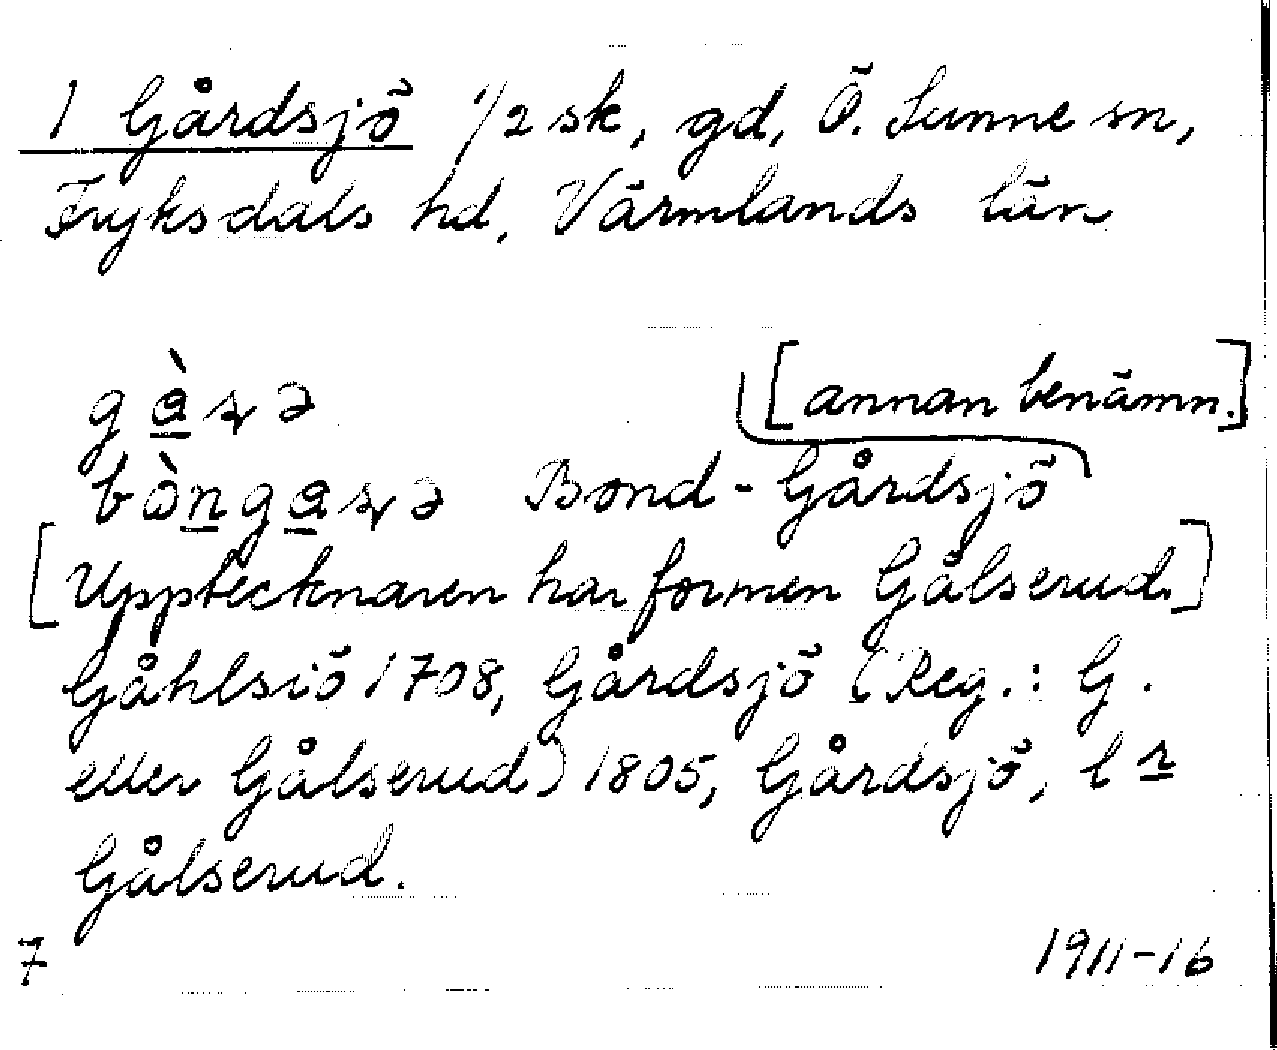 1 Gårdsjö 1/2 sk, gd, Ö. Sunne sn,
Fryksdals hd, Värmlands län
[annan benämn.]
Bond-Gårdsjö
[Upptecknaren har formen Gålserud.]
Gåhlsiö 1708, Gårdsjö (Reg.: G.
eller Gålserud) 1805, Gårdsjö, l r
Gålserud.
7 1911-16